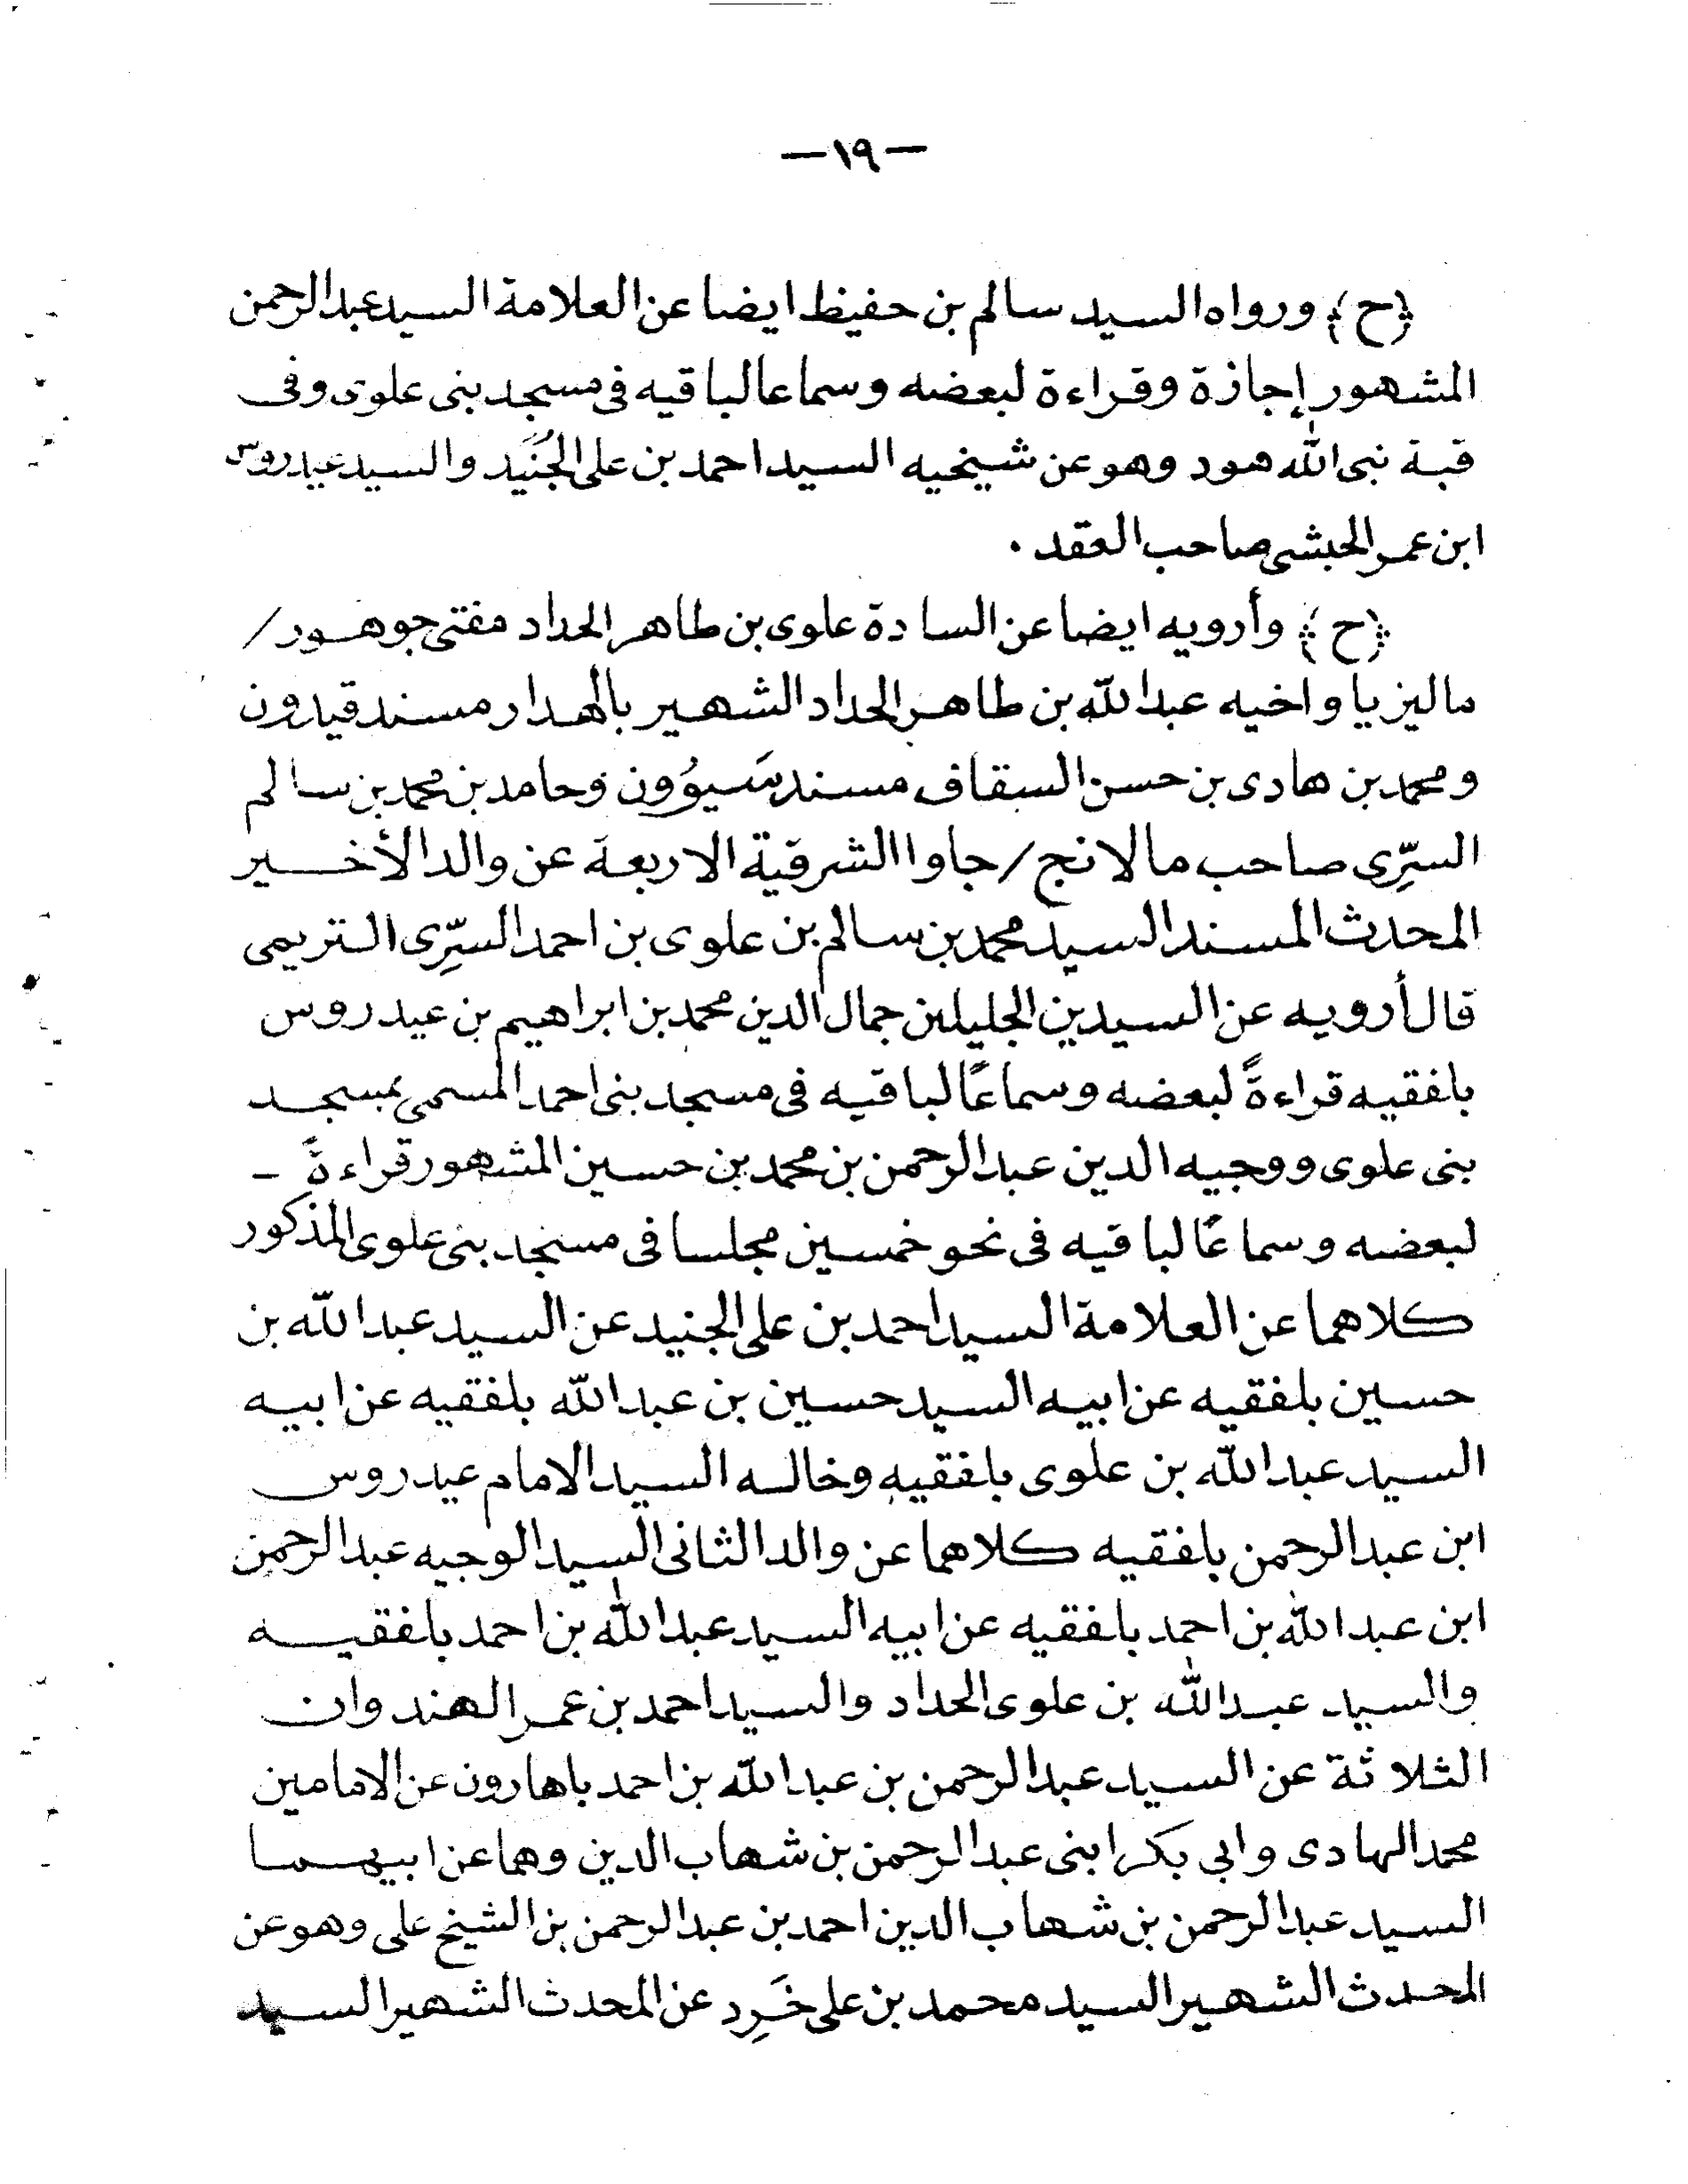 —١٩—
﴿ح﴾ ورواه السيد سالم بن حفيظ ايضا عن العلامة السيد عبد الرحمن
المشهور إجازة وقراءة لبعضه وسماعا لباقيه في مسجد بنى علوى وفى
قبة نبى الله هود وهو عن شيخيه السيد احمد بن على الجُنَيد والسيد عيدروس
ابن عمر الحبشى صاحب العقد .
﴿ح﴾ وأرويه ايضا عن السادة علوى بن طاهر الحداد مفتى جوهور/
ماليزيا واخيه عبد الله بن طاهر الحداد الشهير بالهدار مسند قيدون
ومحمد بن هادى بن حسن السقاف مسند سَيوُون وحامد بن محمد بن سالم
السِّرى صاحب مالانج/جاوا الشرقية الاربعة عن والد الأخير
المحدث المسند السيد محمد بن سالم بن علوى بن احمد السِّرى التريمى
قال أرويه عن السيدين الجليلين جمال الدين محمد بن ابراهيم بن عيدروس
بلفقيه قراءةً لبعضه وسماعًا لباقيه فى مسجد بنى احمد المسمى بمسجد
بنى علوى ووجيه الدين عبد الرحمن بن محمد بن حسين المشهور قراءةً -
لبعضه وسماعًا لباقيه فى نحو خمسين مجلسا فى مسجد بنى علوى المذكور
كلاهما عن العلامة السيد احمد بن على الجنيد عن السيد عبد الله بن
حسين بلفقيه عن ابيه السيد حسين بن عبد الله بلفقيه عن ابيه
السيد عبد الله بن علوى بلفقيه وخاله السيد الامام عيدروس
ابن عبد الرحمن بلفقيه كلاهما عن والد الثانى السيد الوجيه عبد الرحمن
ابن عبد الله بن احمد بلفقيه عن ابيه السيد عبد الله بن احمد بلفقيه
والسيد عبد الله بن علوى الحداد والسيد احمد بن عمر الهندوان
الثلاثة عن السيد عبد الرحمن بن عبد الله بن احمد باهارون عن الامامين
محمد الهادى وابى بكر ابنى عبد الرحمن بن شهاب الدين وهما عن ابيهما
السيد عبد الرحمن بن شهاب الدين احمد بن عبد الرحمن بن الشيخ على وهو عن
المحدث الشهير السيد محمد بن على خَرِد عن المحدث الشهير السيد